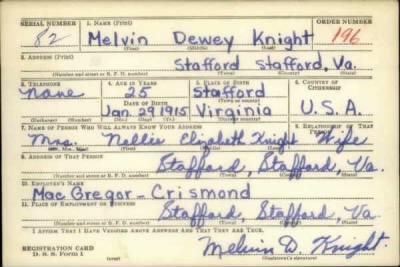 SERIAL NUMBER 1. NAME (Print) ORDER NUMBER
82 Melvin Dewey Knight 196
(First) (Middle) (Last)
2. ADDRESS (Print)
Stafford Stafford, Va.
(Number and street or R. F. D. number) (Town) (County) (State)
3. TELEPHONE 4. AGE IN YEARS 5. PLACE OF BIRTH 6. COUNTRY OF CITIZENSHIP
None 25 Stafford
(Town or county)
DATE OF BIRTH
Jan. 29 1915 Virginia U.S.A.
(Exchange) (Number) (Mo.) (Day) (Yr.) (State or country)
7. NAME OF PERSON WHO WILL ALWAYS KNOW YOUR ADDRESS 8. RELATIONSHIP OF THAT PERSON
Mrs. Mollie Elizabeth Knight Wife
(Mr., Mrs., Miss) (First) (Middle) (Last)
9. ADDRESS OF THAT PERSON
Stafford, Stafford, Va.
(Number and street or R. F. D. number) (Town) (County) (State)
10. EMPLOYER'S NAME
Mac Gregor - Crismond
11. PLACE OF EMPLOYMENT OR BUSINESS
Stafford, Stafford Va.
(Number and street or R. F. D. number) (Town) (County) (State)
I AFFIRM THAT I HAVE VERIFIED ABOVE ANSWERS AND THAT THEY ARE TRUE.
REGISTRATION CARD
D. S. S. Form 1 (over) Melvin D. Knight
(Registrant's signature)